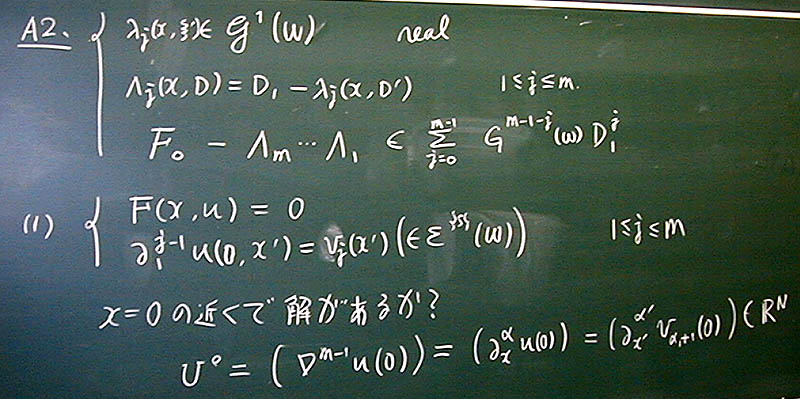 A2. { λ_j(x,ξ') ∈ 𝒢^1(ω) real
Λ_j(x,D) = D_1 - λ_j(x,D') 1≤j≤m.
F_0 - Λ_m ⋯ Λ_1 ∈ Σ_{j=0}^{m-1} G^{m-1-j}(ω) D_1^j
(1) { F(x,u) = 0
∂_1^{j-1} u(0,x') = v_j(x') (∈ Σ^{{s}}(ω)) 1≤j≤m
x=0の近くで解があるか?
U° = (D^{m-1}u(0)) = (∂_x^α u(0)) = (∂_{x'}^{α'} v_{α_1+1}(0)) ∈ R^N